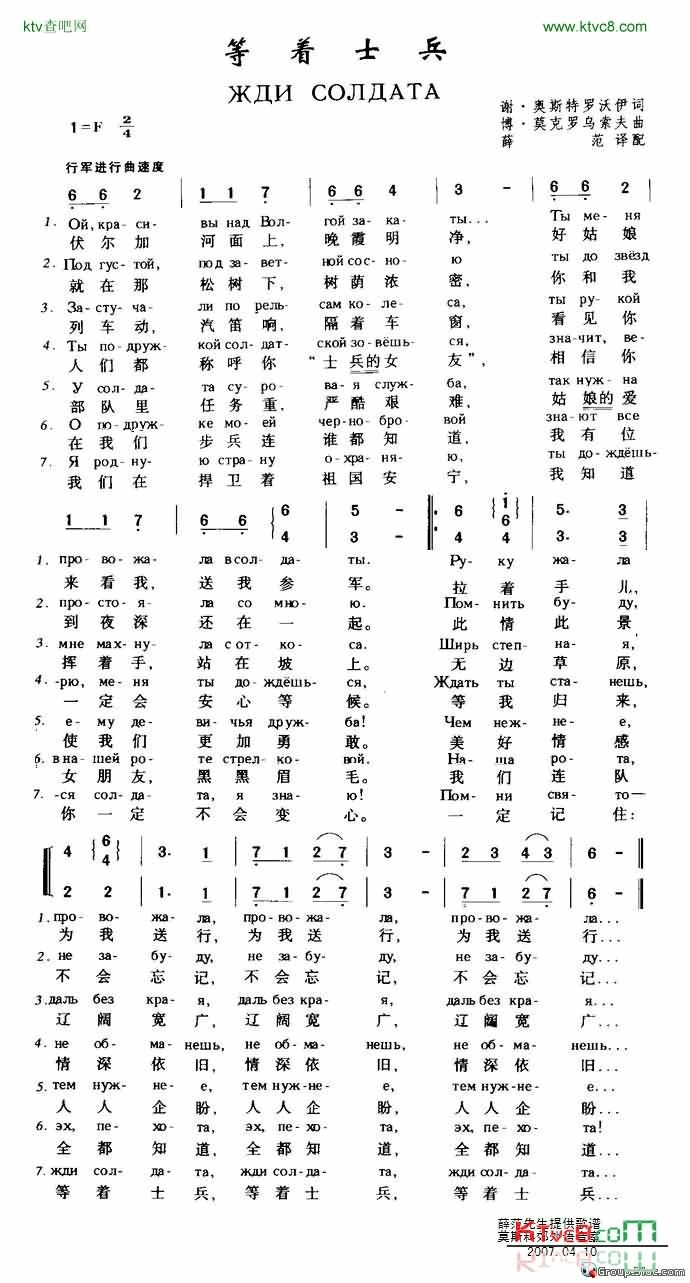 ktv查吧网
www.ktvc8.com
等 着 士 兵
ЖДИ СОЛДАТА
1=F 2/4
谢·奥斯特罗沃伊词
博·莫克罗乌索夫曲
薛 范 译配
行军进行曲速度
6 6 2 | 1 1 7 | 6 6 4 | 3 - | 6 6 2
1. Ой, кра-си- вы над Вол- гой за-ка- ты... Ты ме-ня
伏 尔 加 河 面 上, 晚 霞 明 净, 好 姑 娘
2. Под гус-той, под за-вет- ной сос-но- ю ты до звёзд
就 在 那 松 树 下, 树 荫 浓 密, 你 和 我
3. За-сту-ча- ли по рель- сам ко-ле- са, ты ру-кой
列 车 动, 汽 笛 响, 隔 着 车 窗, 看 见 你
4. Ты по-друж- кой сол-дат- ской зо-вёшь- ся, зна-чит, ве-
人 们 都 称 呼 你 “士 兵的 女 友”, 相 信 你
5. У сол-да- та су-ро- ва-я служ- ба, так нуж-на
部 队 里 任 务 重, 严 酷 艰 难, 姑 娘的 爱
6. О по-друж- ке мо-ей чер-но-бро- вой зна-ют все
在 我 们 步 兵 连 谁 都 知 道, 我 有 位
7. Я род-ну- ю стра-ну о-хра-ня- ю, ты до-ждёшь-
我 们 在 捍 卫 着 祖 国 安 宁, 我 知 道
1 1 7 | 6 6 6/4 | 5/3 - | 6/4 1/6/4 | 5. 3/3. 3
1. про-во-жа- ла в сол-да- ты. Ру-ку жа-ла
来 看 我, 送 我 参 军。 拉 着 手 儿,
2. про-сто-я- ла со мно- ю. Пом-нить бу-ду,
到 夜 深 还 在 一 起。 此 情 此 景
3. мне мах-ну- ла с от-ко- са. Ширь степ-на-я,
挥 着 手, 站 在 坡 上。 无 边 草 原,
4. -рю, ме-ня ты до-ждёшь- ся, Ждать ты ста-нешь,
一 定 会 安 心 等 候。 等 我 归 来,
5. е-му де- ви-чья друж- ба! Чем неж-не-е,
使 我 们 更 加 勇 敢。 美 好 情 感
6. в на-шей ро- те стрел-ко- вой. На-ша ро-та,
女 朋 友, 黑 黑 眉 毛。 我 们 连 队
7. -ся сол-да- та, я зна- ю! Пом-ни свя-то—
你 一 定 不 会 变 心。 一 定 记 住:
4 6/4 | 3. 1 | 7 1 2 7 | 3 - | 2 3 4 3 | 6 -
2 2 | 1. 1 | 7 1 2 7 | 3 - | 7 1 2 7 | 6 -
1. про-во- жа-ла, про-во-жа- ла, про-во-жа- ла...
为 我 送 行, 为 我 送 行, 为 我 送 行...
2. не за- бу-ду, не за-бу- ду, не за-бу- ду...
不 会 忘 记, 不 会 忘 记, 不 会 忘 记...
3. даль без кра-я, даль без кра- я, даль без кра- я...
辽 阔 宽 广, 辽 阔 宽 广, 辽 阔 宽 广...
4. не об- ма-нешь, не об-ма- нешь, не об-ма- нешь...
情 深 依 旧, 情 深 依 旧, 情 深 依 旧...
5. тем нуж- не-е, тем нуж-не- е, тем нуж-не- е...
人 人 企 盼, 人 人 企 盼, 人 人 企 盼...
6. эх, пе- хо-та, эх, пе-хо- та, эх, пе-хо- та!
全 都 知 道, 全 都 知 道, 全 都 知 道...
7. жди сол- да-та, жди сол-да- та, жди сол-да- та...
等 着 士 兵, 等 着 士 兵, 等 着 士 兵...
薛范先生提供歌谱
莫斯科郊外语音版
KTVC8.COM
2007.04.10
Groupeshoc.com